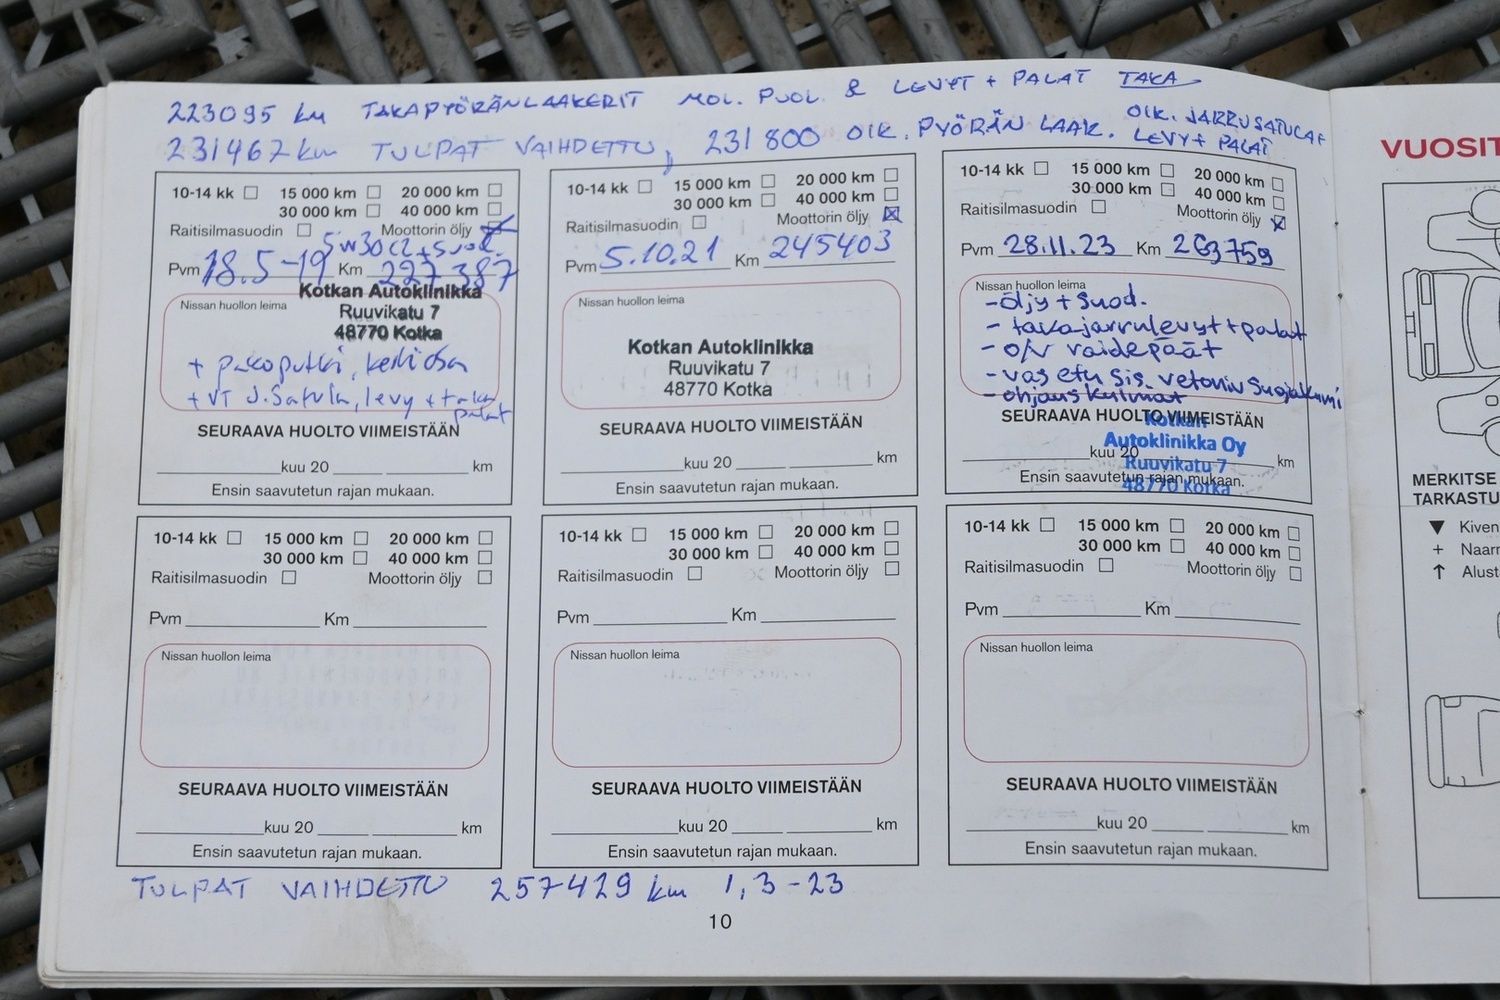 223095 km TAKAPYÖRÄNLAAKERIT MOL. PUOL. & LEVYT + PALAT TAKA
231467 km TULPAT VAIHDETTU, 231800 OIK. PYÖRÄN LAAK. OIK. JARRUSATULA+
LEVY+ PALAT
10-14 kk 15 000 km 20 000 km
30 000 km 40 000 km
Raitisilmasuodin Moottorin öljy
5W30 C2 + Suod.
Pvm 18.5-19 Km 227387
Nissan huollon leima
Kotkan Autoklinikka
Ruuvikatu 7
48770 Kotka
+ pakoputki, keskiosa
+ VT J.Satula, levy + taka
palat
SEURAAVA HUOLTO VIIMEISTÄÄN
kuu 20 km
Ensin saavutetun rajan mukaan.
10-14 kk 15 000 km 20 000 km
30 000 km 40 000 km
Raitisilmasuodin Moottorin öljy
Pvm 5.10.21 Km 245403
Nissan huollon leima
Kotkan Autoklinikka
Ruuvikatu 7
48770 Kotka
SEURAAVA HUOLTO VIIMEISTÄÄN
kuu 20 km
Ensin saavutetun rajan mukaan.
10-14 kk 15 000 km 20 000 km
30 000 km 40 000 km
Raitisilmasuodin Moottorin öljy
Pvm 28.11.23 Km 263759
Nissan huollon leima
- öljy + suod.
- takajarrulevyt + palat
- o/v raidepäät
- vas etu sis. vetoniv suojakumi
- ohjauskulmat
SEURAAVA HUOLTO VIIMEISTÄÄN
Kotkan
Autoklinikka Oy
Ruuvikatu 7
48770 Kotka
kuu 20 km
Ensin saavutetun rajan mukaan.
10-14 kk 15 000 km 20 000 km
30 000 km 40 000 km
Raitisilmasuodin Moottorin öljy
Pvm Km
Nissan huollon leima
SEURAAVA HUOLTO VIIMEISTÄÄN
kuu 20 km
Ensin saavutetun rajan mukaan.
10-14 kk 15 000 km 20 000 km
30 000 km 40 000 km
Raitisilmasuodin Moottorin öljy
Pvm Km
Nissan huollon leima
SEURAAVA HUOLTO VIIMEISTÄÄN
kuu 20 km
Ensin saavutetun rajan mukaan.
10-14 kk 15 000 km 20 000 km
30 000 km 40 000 km
Raitisilmasuodin Moottorin öljy
Pvm Km
Nissan huollon leima
SEURAAVA HUOLTO VIIMEISTÄÄN
kuu 20 km
Ensin saavutetun rajan mukaan.
TULPAT VAIHDETTU 257429 km 1,3-23
10
VUOSIT
MERKITSE
TARKASTU
▼ Kiven
+ Naarm
↑ Alust